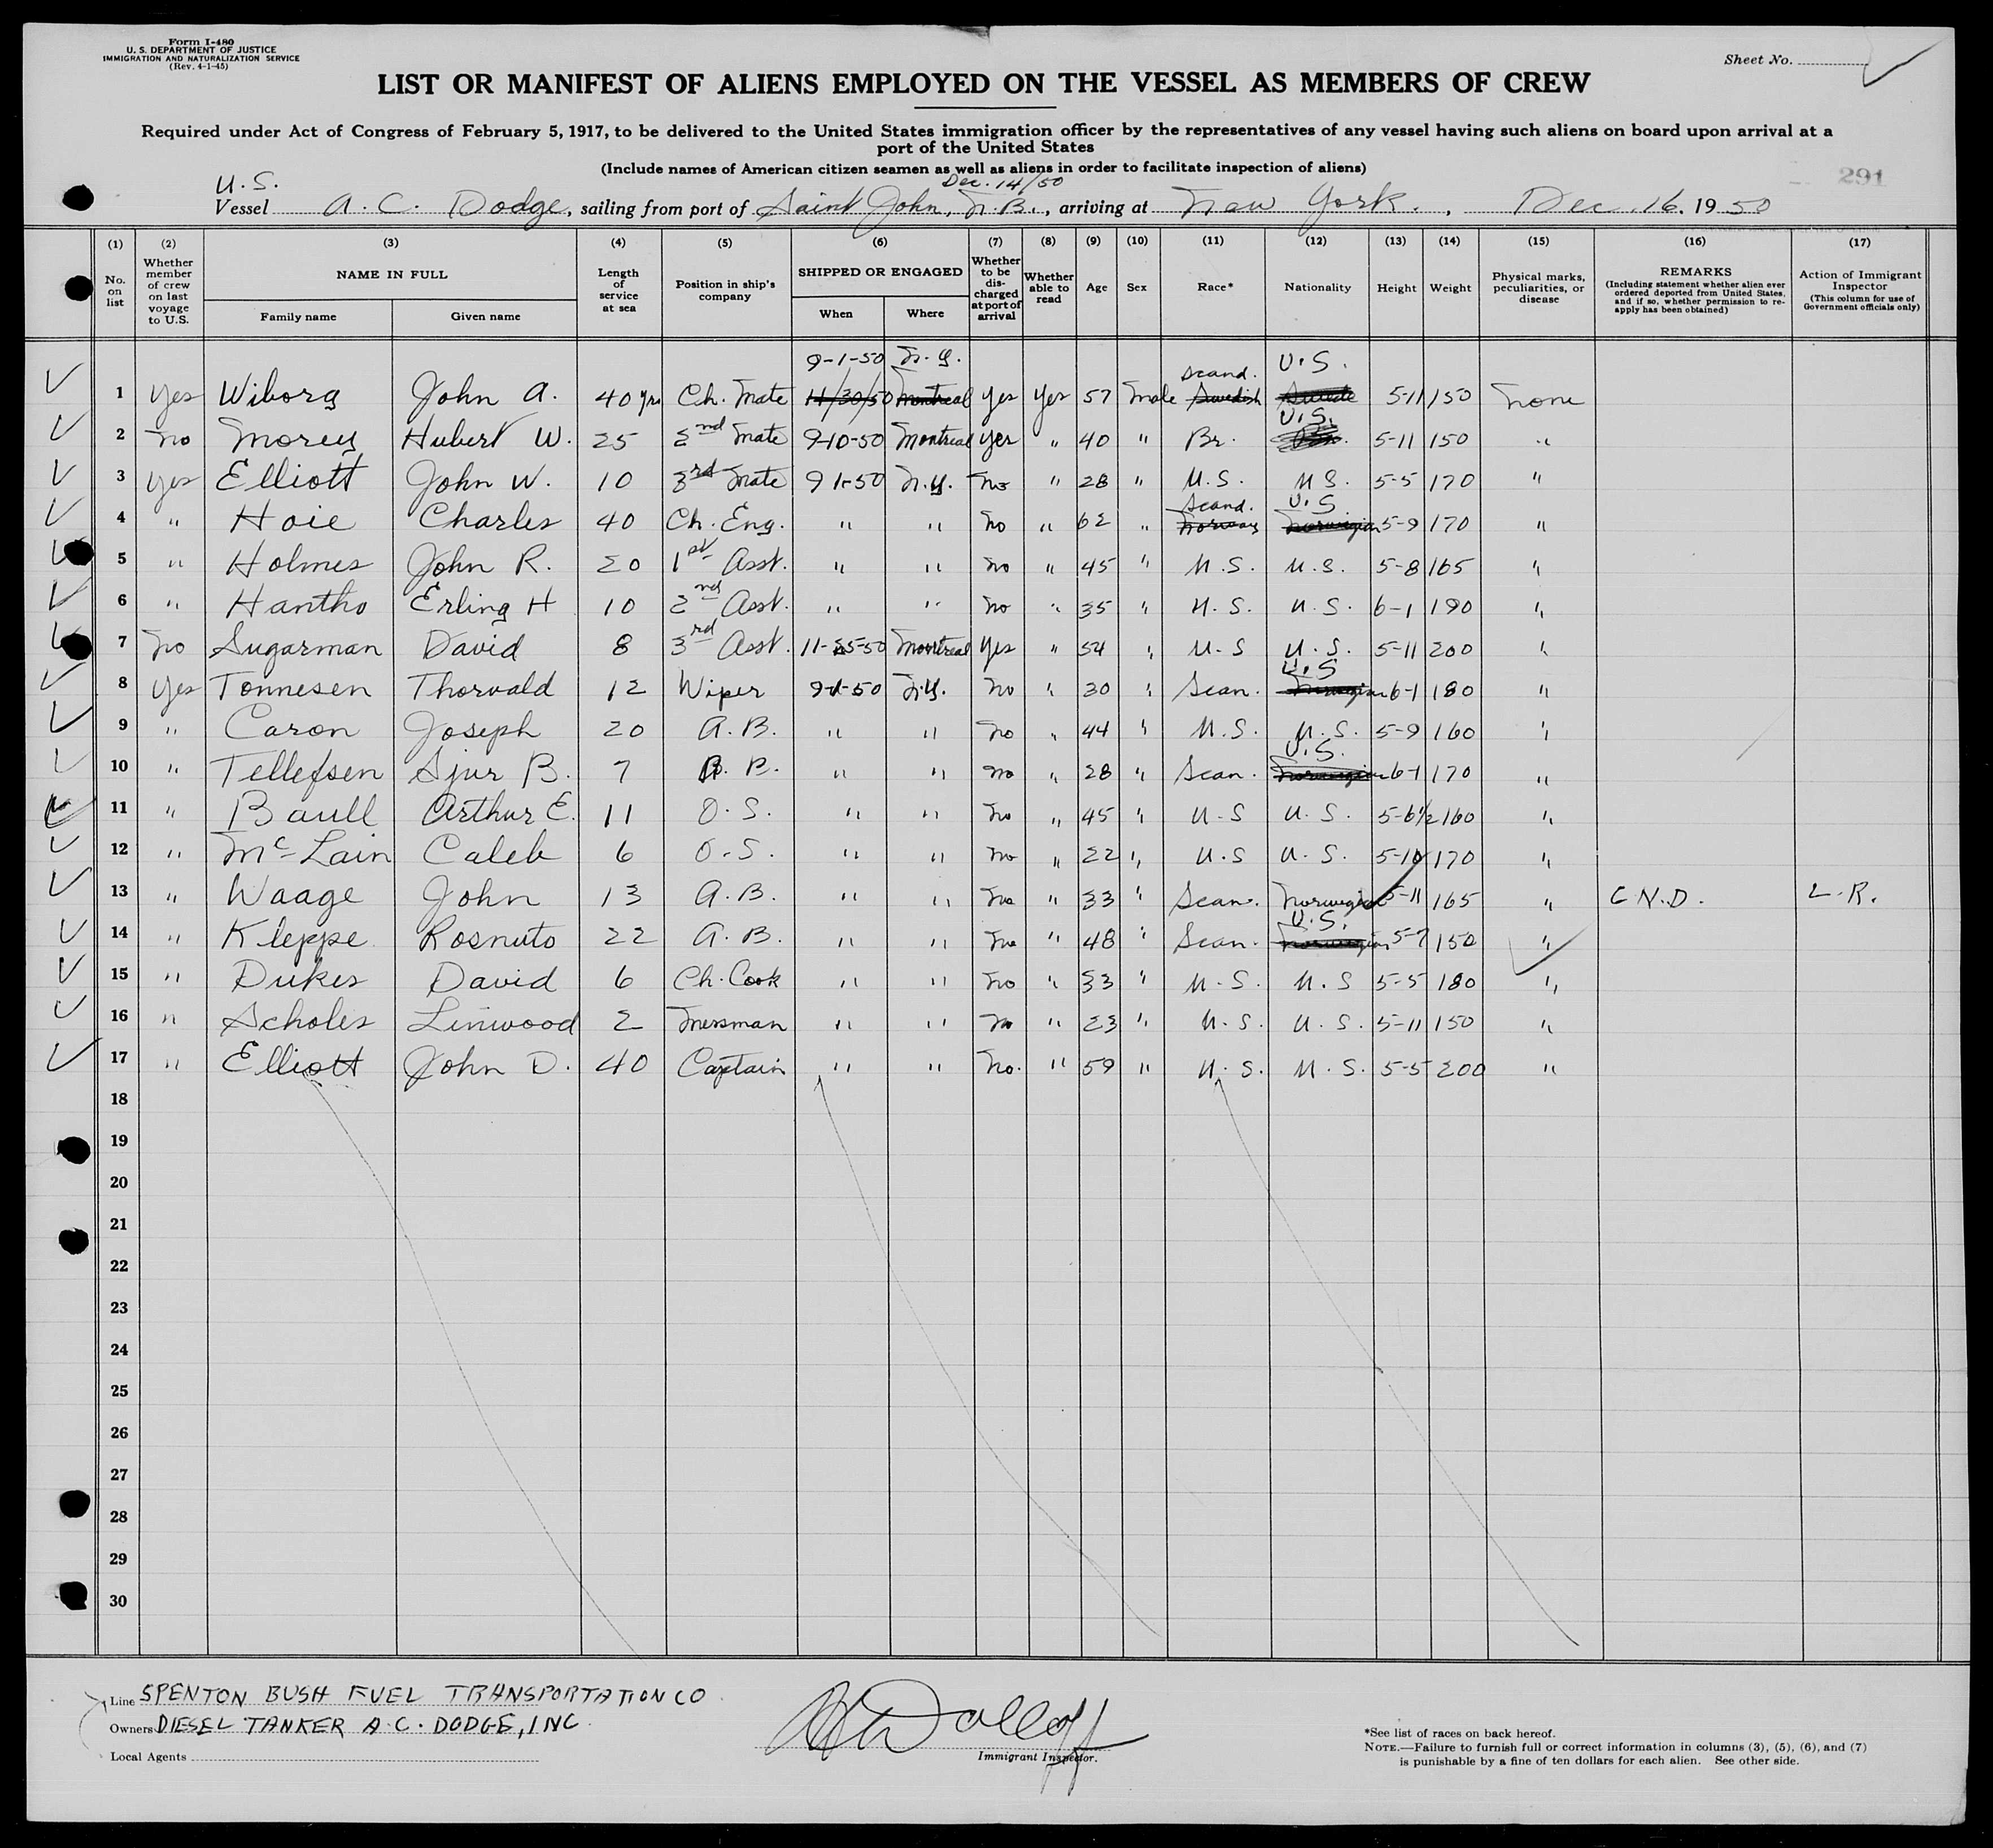 Form I-480
U. S. DEPARTMENT OF JUSTICE
IMMIGRATION AND NATURALIZATION SERVICE
(Rev. 4-1-45)
Sheet No.
LIST OR MANIFEST OF ALIENS EMPLOYED ON THE VESSEL AS MEMBERS OF CREW
Required under Act of Congress of February 5, 1917, to be delivered to the United States immigration officer by the representatives of any vessel having such aliens on board upon arrival at a
port of the United States
(Include names of American citizen seamen as well as aliens in order to facilitate inspection of aliens)
291
U.S. Dec. 14/50
Vessel A. C. Dodge, sailing from port of Saint John, N.B., arriving at New York., Dec. 16. 1950
(1) (2) (3) (4) (5) (6) (7) (8) (9) (10) (11) (12) (13) (14) (15) (16) (17)
No. on list
Whether member of crew on last voyage to U.S.
NAME IN FULL
Family name Given name
Length of service at sea
Position in ship's company
SHIPPED OR ENGAGED
When Where
Whether to be discharged at port of arrival
Whether able to read
Age
Sex
Race*
Nationality
Height
Weight
Physical marks, peculiarities, or disease
REMARKS
(Including statement whether alien ever ordered deported from United States, and if so, whether permission to reapply has been obtained)
Action of Immigrant Inspector
(This column for use of Government officials only)
9-1-50 N.Y. Scand. U.S.
1 Yes Wiborg John A. 40 yrs Ch. Mate 11/30/50 Montreal Yes Yes 57 Male Swedish Swede 5-11 150 None
U.S.
2 No Morey Hubert W. 25 2nd Mate 9-10-50 Montreal Yes " 40 " Br. Br. 5-11 150 "
3 Yes Elliott John W. 10 3rd Mate 9-1-50 N.Y. No " 28 " U.S. U.S. 5-5 170 "
Scand. U.S.
4 " Hoie Charles 40 Ch. Eng. " " No " 62 " Norway Norwegian 5-9 170 "
5 " Holmes John R. 20 1st Asst. " " No " 45 " U.S. U.S. 5-8 165 "
6 " Hantho Erling H 10 2nd Asst. " " No " 35 " U.S. U.S. 6-1 190 "
7 No Sugarman David 8 3rd Asst. 11-25-50 Montreal Yes " 54 " U.S U.S. 5-11 200 "
U.S
8 Yes Tonnesen Thorvald 12 Wiper 9-1-50 N.Y. No " 30 " Scan. Norwegian 6-1 180 "
9 " Caron Joseph 20 A.B. " " No " 44 " U.S. U.S. 5-9 160 "
U.S.
10 " Tellefsen Sjur B. 7 A.B. " " No " 28 " Scan. Norwegian 6-1 170 "
11 " Baull Arthur E. 11 O.S. " " No " 45 " U.S U.S. 5-6½ 160 "
12 " McLain Caleb 6 O.S. " " No " 22 " U.S U.S. 5-10 170 "
13 " Waage John 13 A.B. " " No " 33 " Scan. Norwegian 5-11 165 " C.N.D. L.R.
U.S.
14 " Kleppe Rosnuto 22 A.B. " " No " 48 " Scan. Norwegian 5-7 150 "
15 " Dukes David 6 Ch. Cook " " No " 33 " U.S. U.S 5-5 180 "
16 " Scholes Linwood 2 Messman " " No " 23 " U.S. U.S. 5-11 150 "
17 " Elliott John D. 40 Captain " " No. " 59 " U.S. U.S. 5-5 200 "
18
19
20
21
22
23
24
25
26
27
28
29
30
Line SPENTON BUSH FUEL TRANSPORTATION CO
Owners DIESEL TANKER A.C. DODGE, INC.
Local Agents
Immigrant Inspector.
*See list of races on back hereof.
NOTE.—Failure to furnish full or correct information in columns (3), (5), (6), and (7)
is punishable by a fine of ten dollars for each alien. See other side.